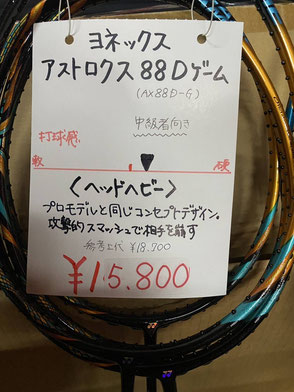 ヨネックス
アストロクス88Dゲーム
(AX88D-G)
中級者向き
打球感
軟 硬
〈ヘッドヘビー〉
プロモデルと同じコンセプトデザイン。
攻撃的スマッシュで相手を崩す
参考上代 ¥18,700
¥15,800